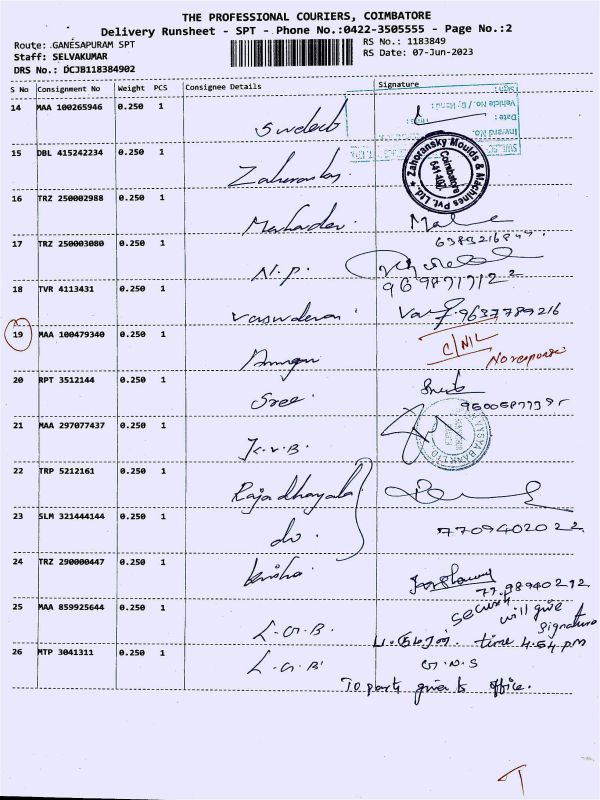 THE PROFESSIONAL COURIERS, COIMBATORE
Delivery Runsheet - SPT - Phone No.:0422-3505555 - Page No.:2
Route: GANESAPURAM SPT
RS No.: 1183849
Staff: SELVAKUMAR
RS Date: 07-Jun-2023
DRS No.: DCJB118384902
S No Consignment No Weight PCS Consignee Details Signature
Sign:
Vehicle No. / By Hand:
Date: Time:
Inward No.
14 MAA 100265946 0.250 1
15 DBL 415242234 0.250 1
Zahoransky Moulds & Machines Pvt. Ltd. Coimbatore 641-407.
16 TRZ 250002988 0.250 1 Mahadev
17 TRZ 250003080 0.250 1 N.P.
18 TVR 4113431 0.250 1 Vasudevan 9637789216
19 MAA 100479340 0.250 1 Murugan C/NIL No response
20 RPT 3512144 0.250 1 Sree
21 MAA 297077437 0.250 1 K.V.B.
22 TRP 5212161 0.250 1 Rajadhayala
23 SLM 321444144 0.250 1 do 7709402022
24 TRZ 290000447 0.250 1 Krisha
security will give signature
25 MAA 859925644 0.250 1 L.G.B. time 4.54 pm
26 MTP 3041311 0.250 1 L.G.B. G.N.S
To party given to office.